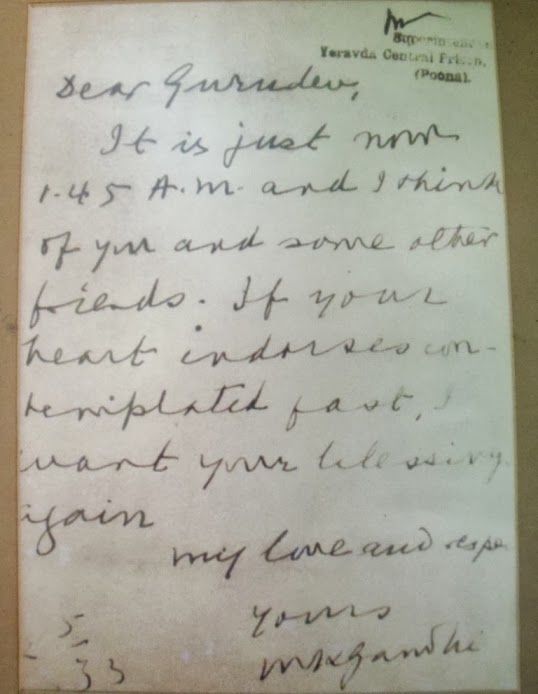 Superintendent
Yeravda Central Prison.
(Poona).
Dear Gurudev,
It is just now
1.45 A.M. and I think
of you and some other
friends. If your
heart indorses con-
templated fast, I
want your blessing
again
my love and respe
yours
MKGandhi
5
33